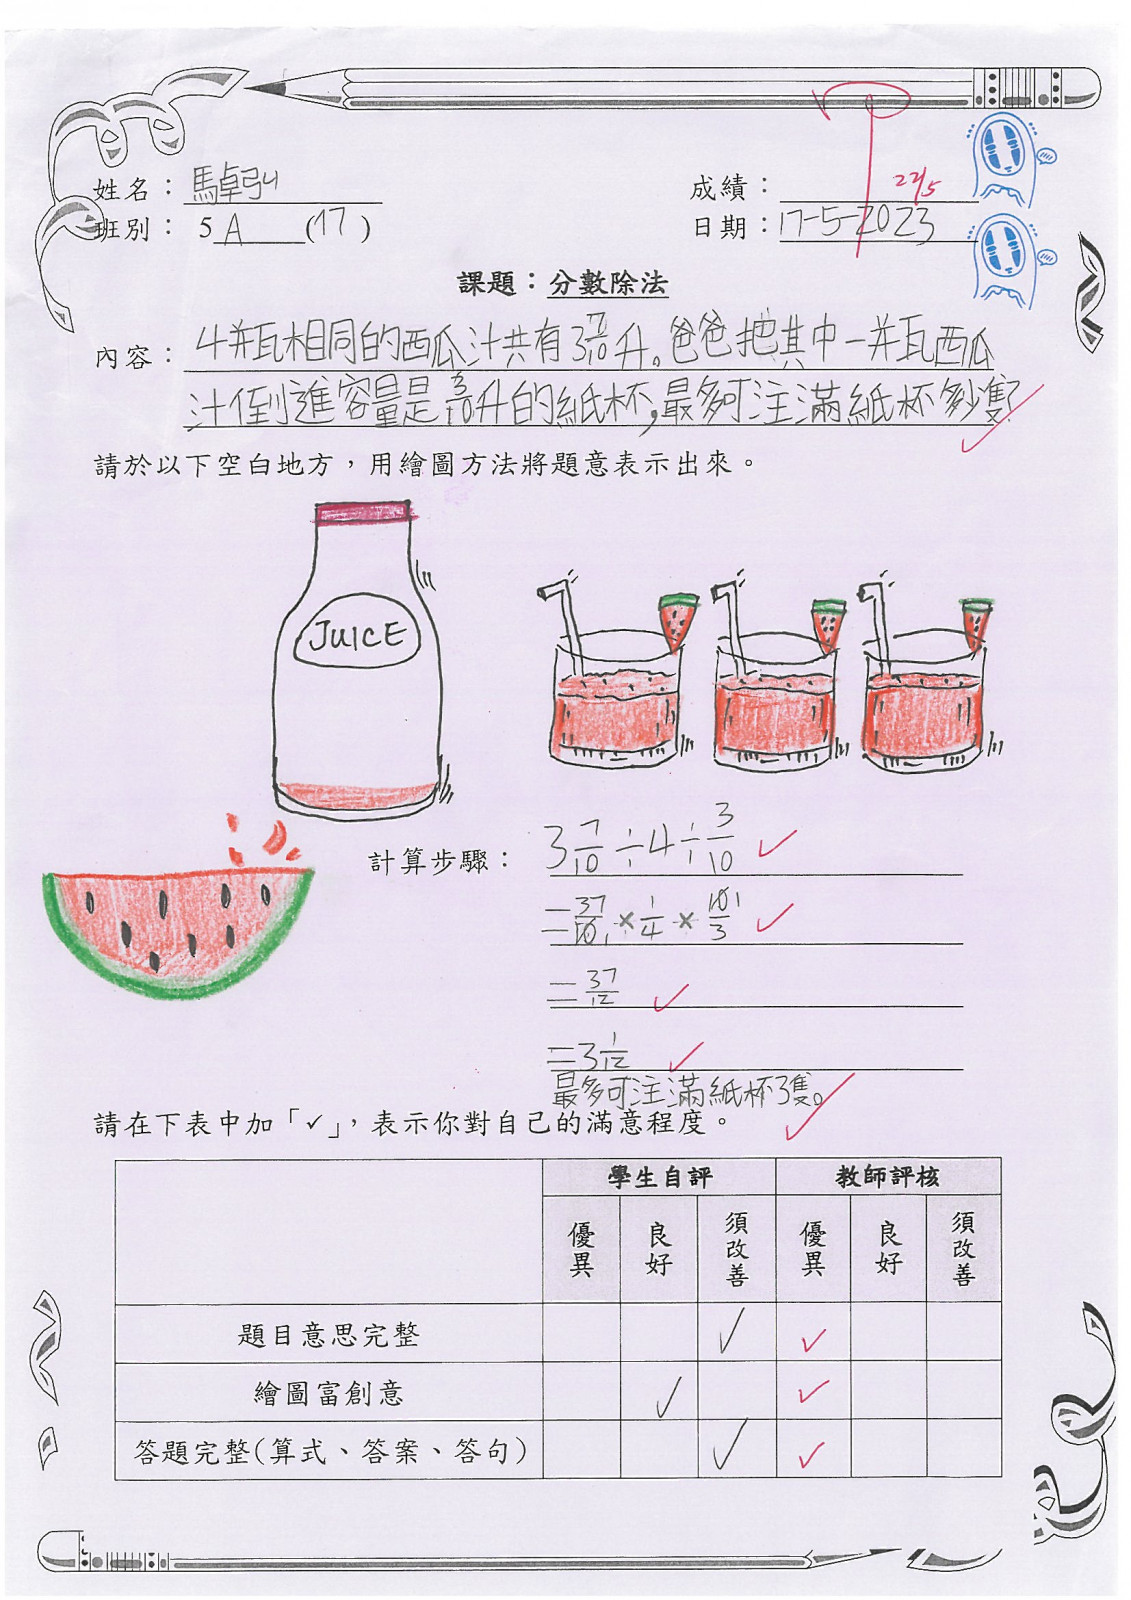 姓名：馬卓弘
成績： 22/5
班別： 5 A (17)
日期：17-5-2023
課題：分數除法
內容：4瓶相同的西瓜汁共有3 7/10升。爸爸把其中一瓶西瓜
汁倒進容量是3/10升的紙杯，最多可注滿紙杯多少隻？
請於以下空白地方，用繪圖方法將題意表示出來。
JUICE
計算步驟： 3 7/10 ÷ 4 ÷ 3/10
= 37/10 × 1/4 × 10/3
= 37/12
= 3 1/12
最多可注滿紙杯3隻。
請在下表中加「✓」，表示你對自己的滿意程度。
學生自評 教師評核
優異 良好 須改善 優異 良好 須改善
題目意思完整 ✓ ✓
繪圖富創意 ✓ ✓
答題完整(算式、答案、答句) ✓ ✓